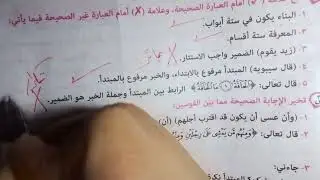 علامة (✓) أمام العبارة الصحيحة، وعلامة (X) أمام العبارة غير الصحيحة فيما يأتي:
البناء يكون في ستة أبواب.
٢- المعرفة ستة أقسام.
٣- (زيد يقوم) الضمير واجب الاستتار. X
٤- (قال سيبويه) المبتدأ مرفوع بالابتداء، والخبر مرفوع بالمبتدأ.
٥- قال تعالى: ﴿الْحَاقَّةُ ۝ مَا الْحَاقَّةُ﴾ الرابط بين المبتدأ وجملة الخبر هو الضمير. X
تخير الإجابة الصحيحة مما بين القوسين:
١- (وأن عسى أن يكون قد اقترب أجلهم) (أن)
٢- قال تعالى:
٣- جاءني:
المبتدأ